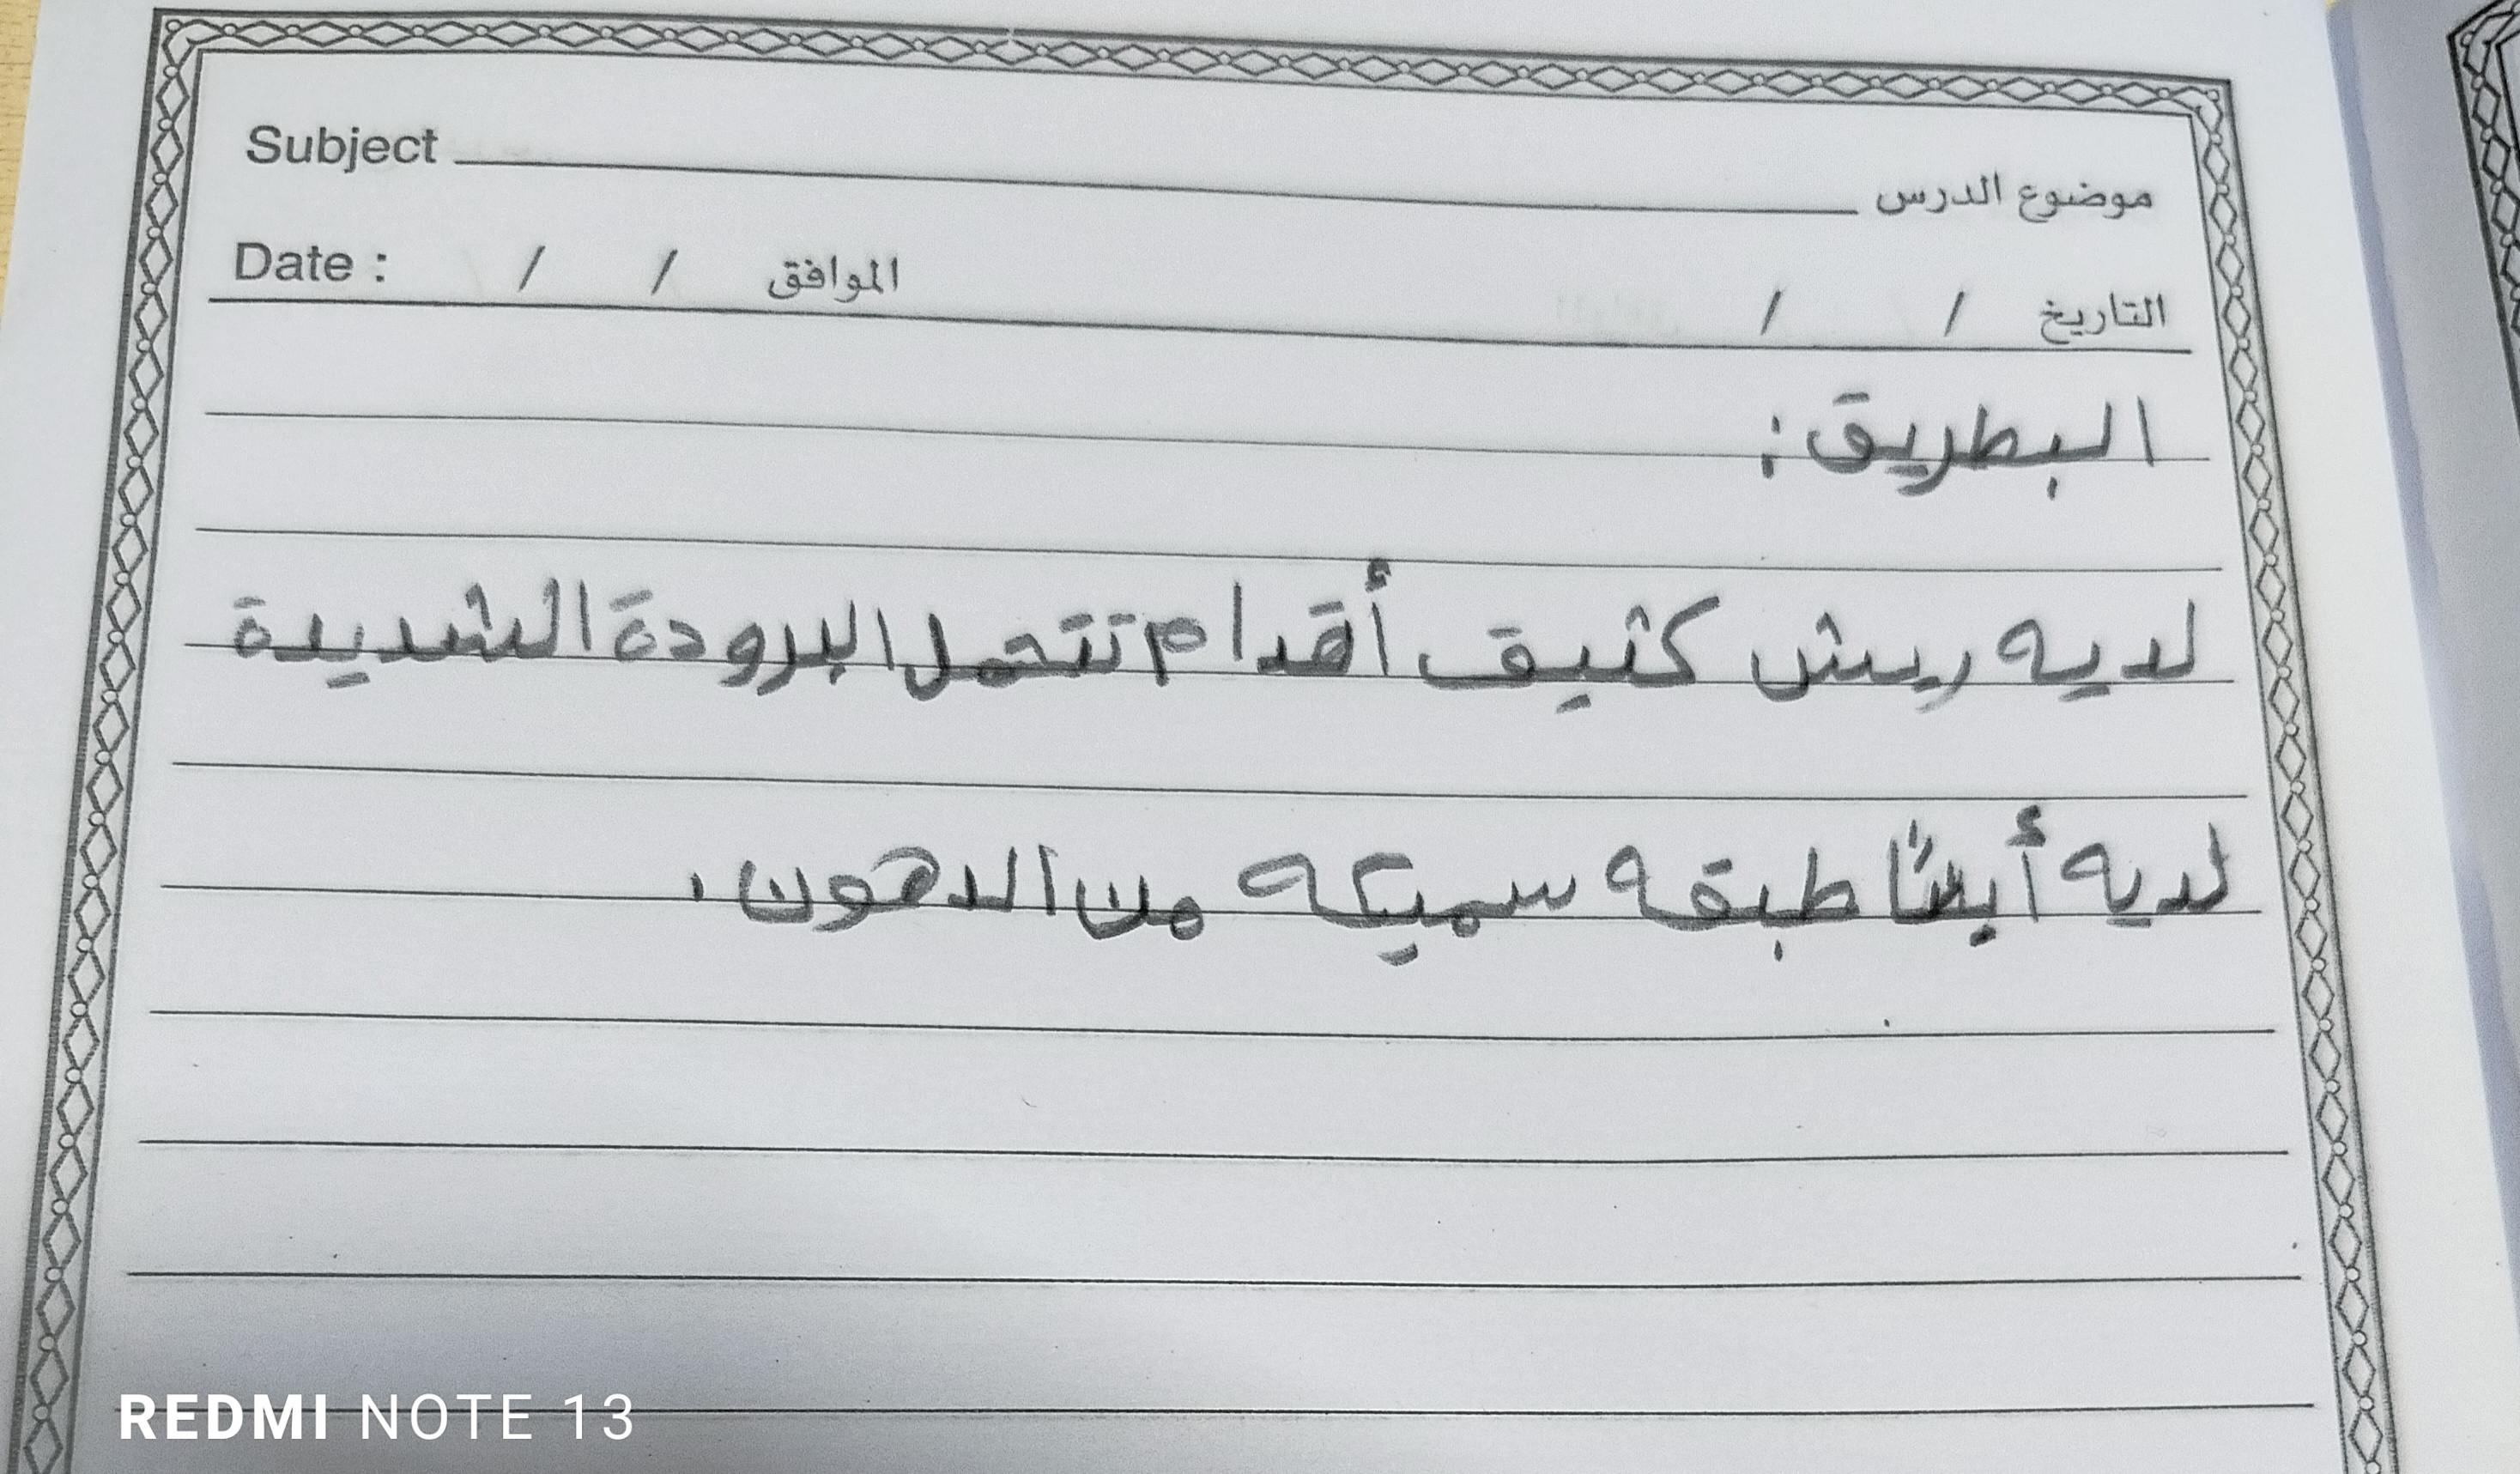 Subject موضوع الدرس
Date : / / الموافق / / التاريخ
البطريق :
لديه ريش كثيق أقدام تتحمل البرودة الشديدة
لديه أيضًا طبقه سميكه من الدهون .
REDMI NOTE 13